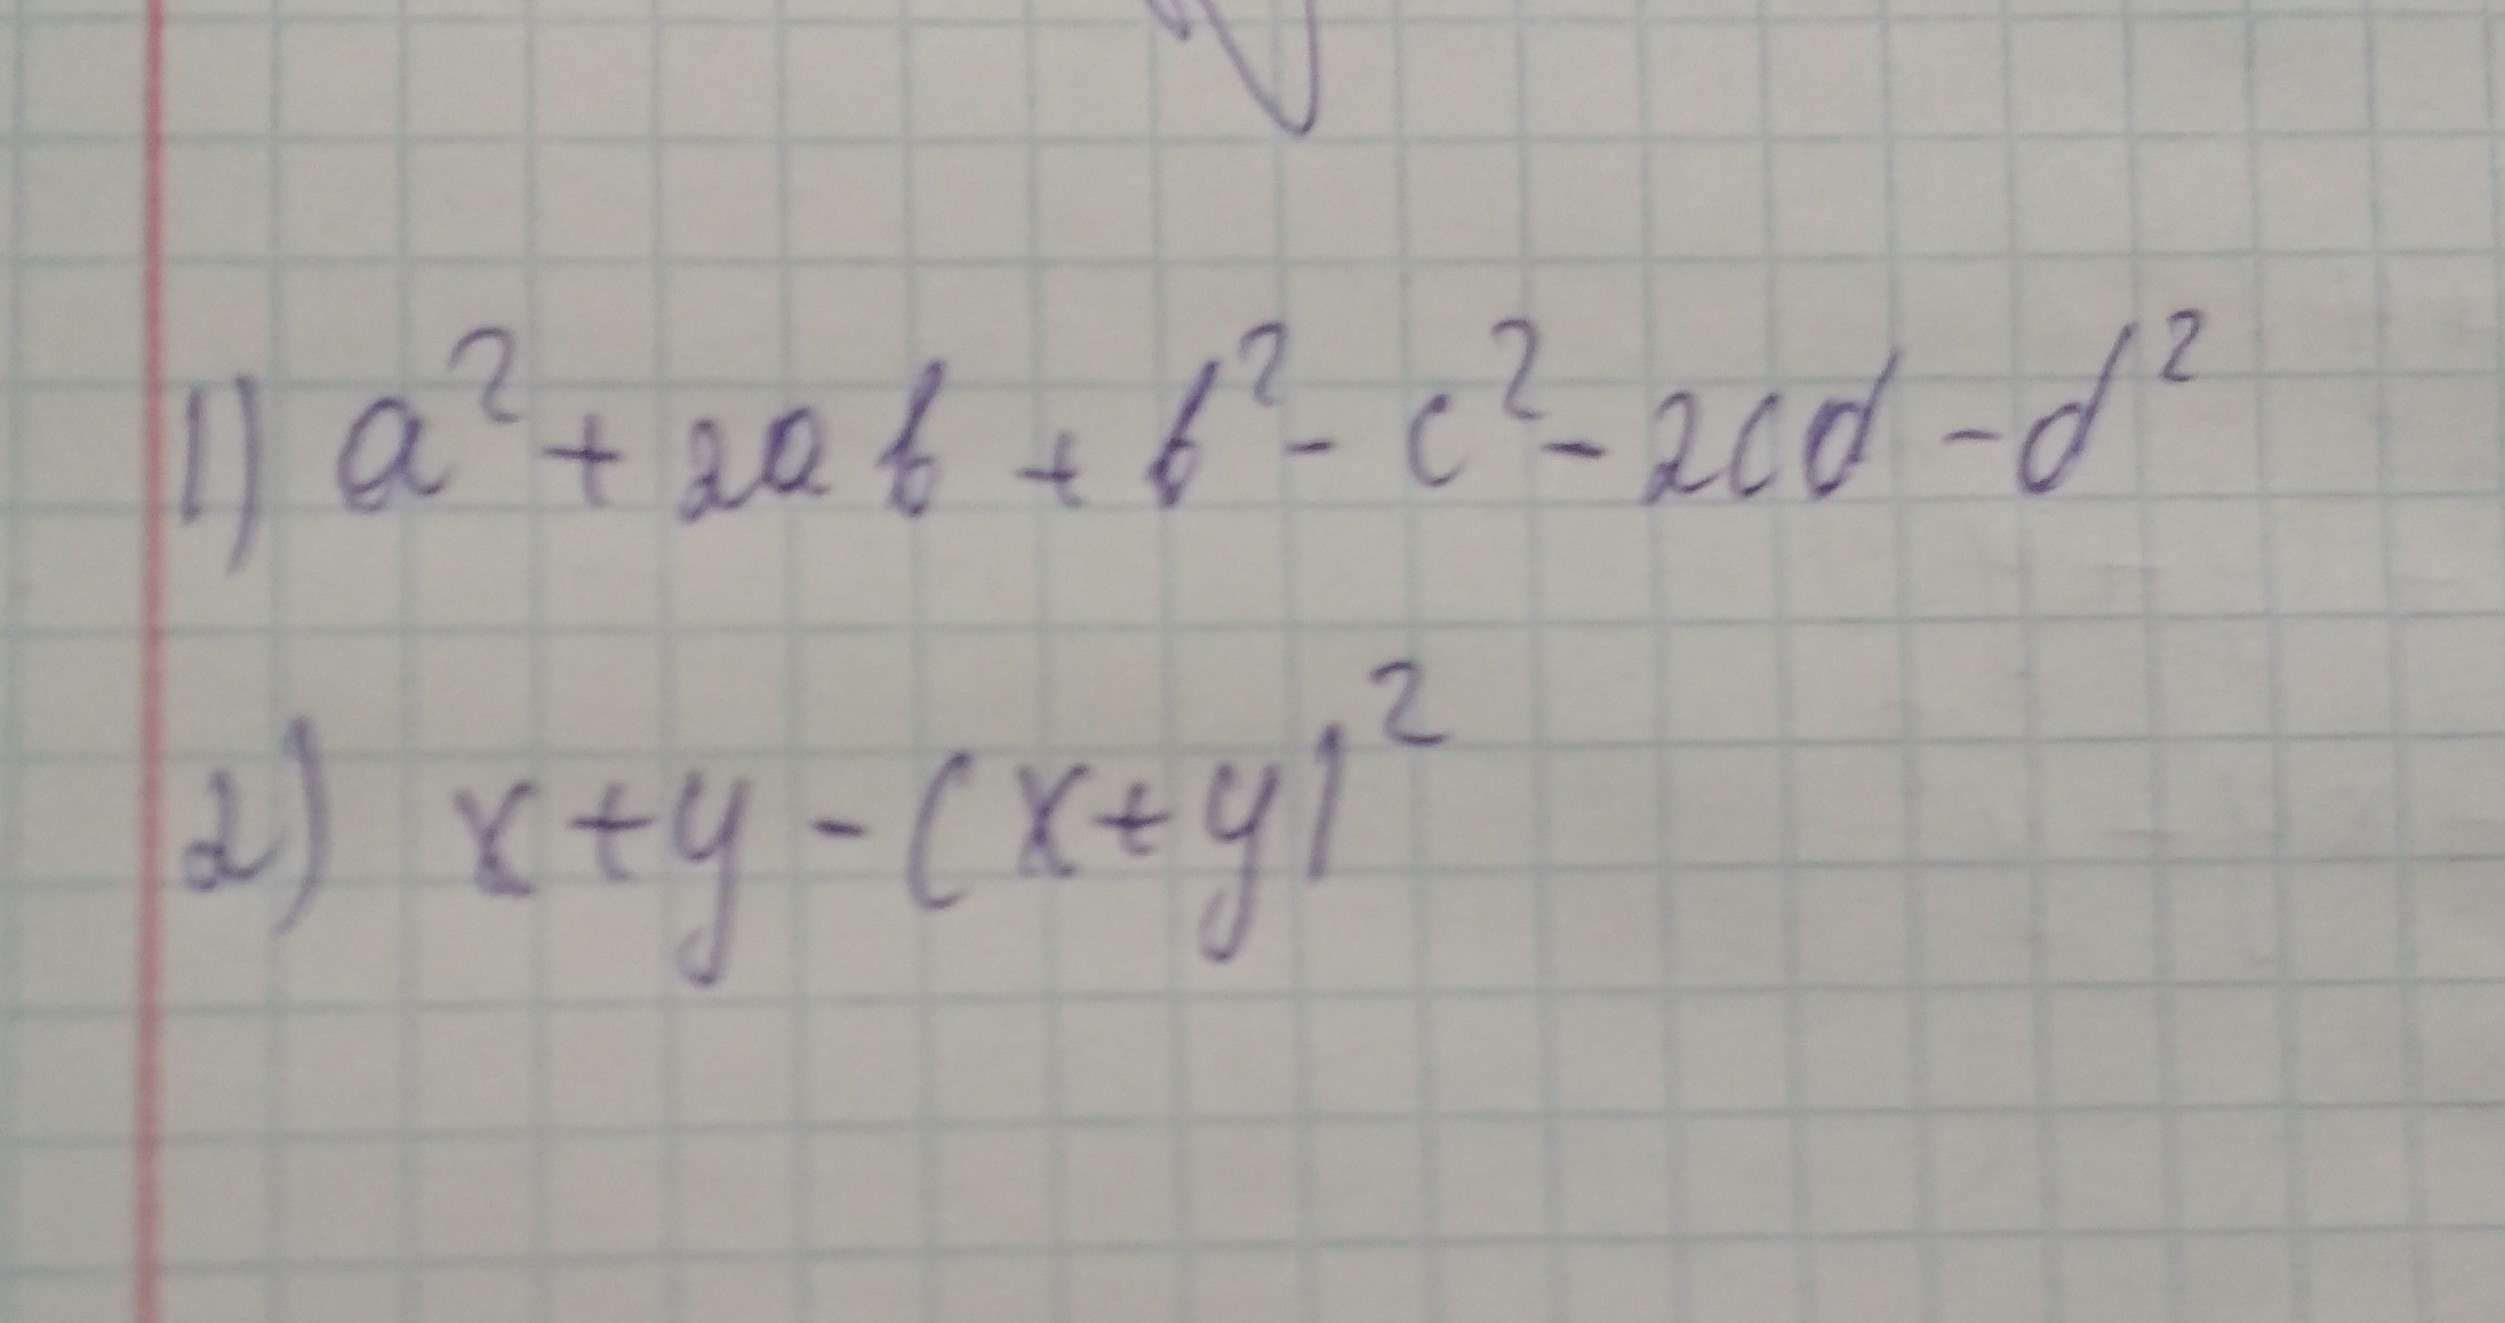 1) a² + 2ab + b² - c² - 2cd - d²
2) x + y - (x + y)²